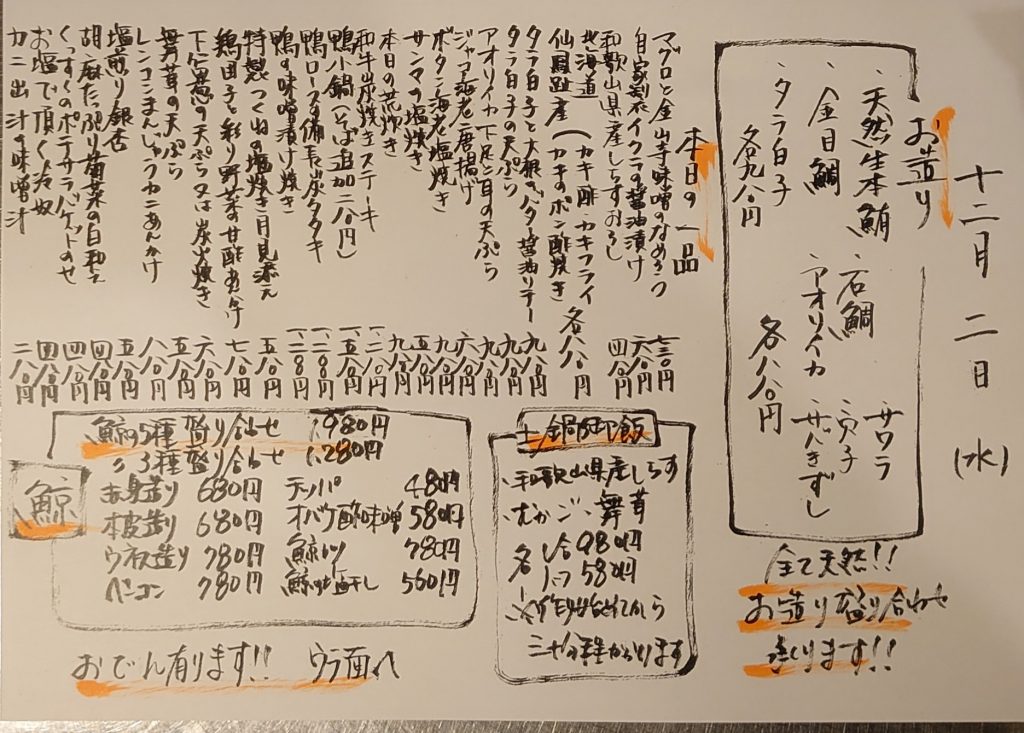 十二月二日(水)
お造り
・天然生本鮪 ・石鯛 ・サワラ
・金目鯛 ・アオリイカ ・穴子
・タラ白子 ・サバきずし
各九八〇円 各八八〇円
全て天然!!
お造り盛り合わせ
承ります!!
本日の一品
マグロと金山寺味噌のなめろう 七三〇円
自家製イクラの醤油漬け 六八〇円
和歌山県産しらすおろし 四八〇円
北海道 (カキ酢・カキフライ
仙鳳趾産 (カキのポン酢焼き 各八八〇円
タラ白子と大根のバター醤油ソテー 九八〇円
タラ白子の天ぷら 九八〇円
アオリイカ下足と耳の天ぷら 九八〇円
ジャコ海老唐揚げ 六八〇円
ボタン海老塩焼き 九八〇円
サンマの塩焼き 五八〇円
本日の荒炊き 九八〇円
和牛炭焼きステーキ 一、二八〇円
鴨小鍋(そば追加二八〇円) 一、五八〇円
鴨ロースの備長炭タタキ 一、二八〇円
鴨の味噌漬け焼き 一、二八〇円
特製つくねの塩焼き月見添え 五八〇円
鶏団子と彩り野菜の甘酢あんかけ 七八〇円
下仁田葱の天ぷら又は炭火焼き 六八〇円
舞茸の天ぷら 五八〇円
レンコンまんじゅうカニあんかけ 八八〇円
塩煎り銀杏 五八〇円
胡麻たっぷり菊菜の白和え 四八〇円
くっすくのポテサラバゲットのせ 四八〇円
お塩で頂く冷奴 四八〇円
カニ出汁の味噌汁 二八〇円
土鍋御飯
・和歌山県産しらす
・むかご・舞茸
各 1合 980円
1/2 580円
※作り始めてから
三十分程かかります
鯨
鯨の5種盛り合せ 1,980円
〃 3種盛り合せ 1,280円
赤身造り 680円 テッパ 480円
本皮造り 680円 オバケ酢味噌 580円
ウネス造り 780円 鯨カツ 780円
ベーコン 780円 鯨の塩干し 560円
おでん有ります!! ウラ面へ